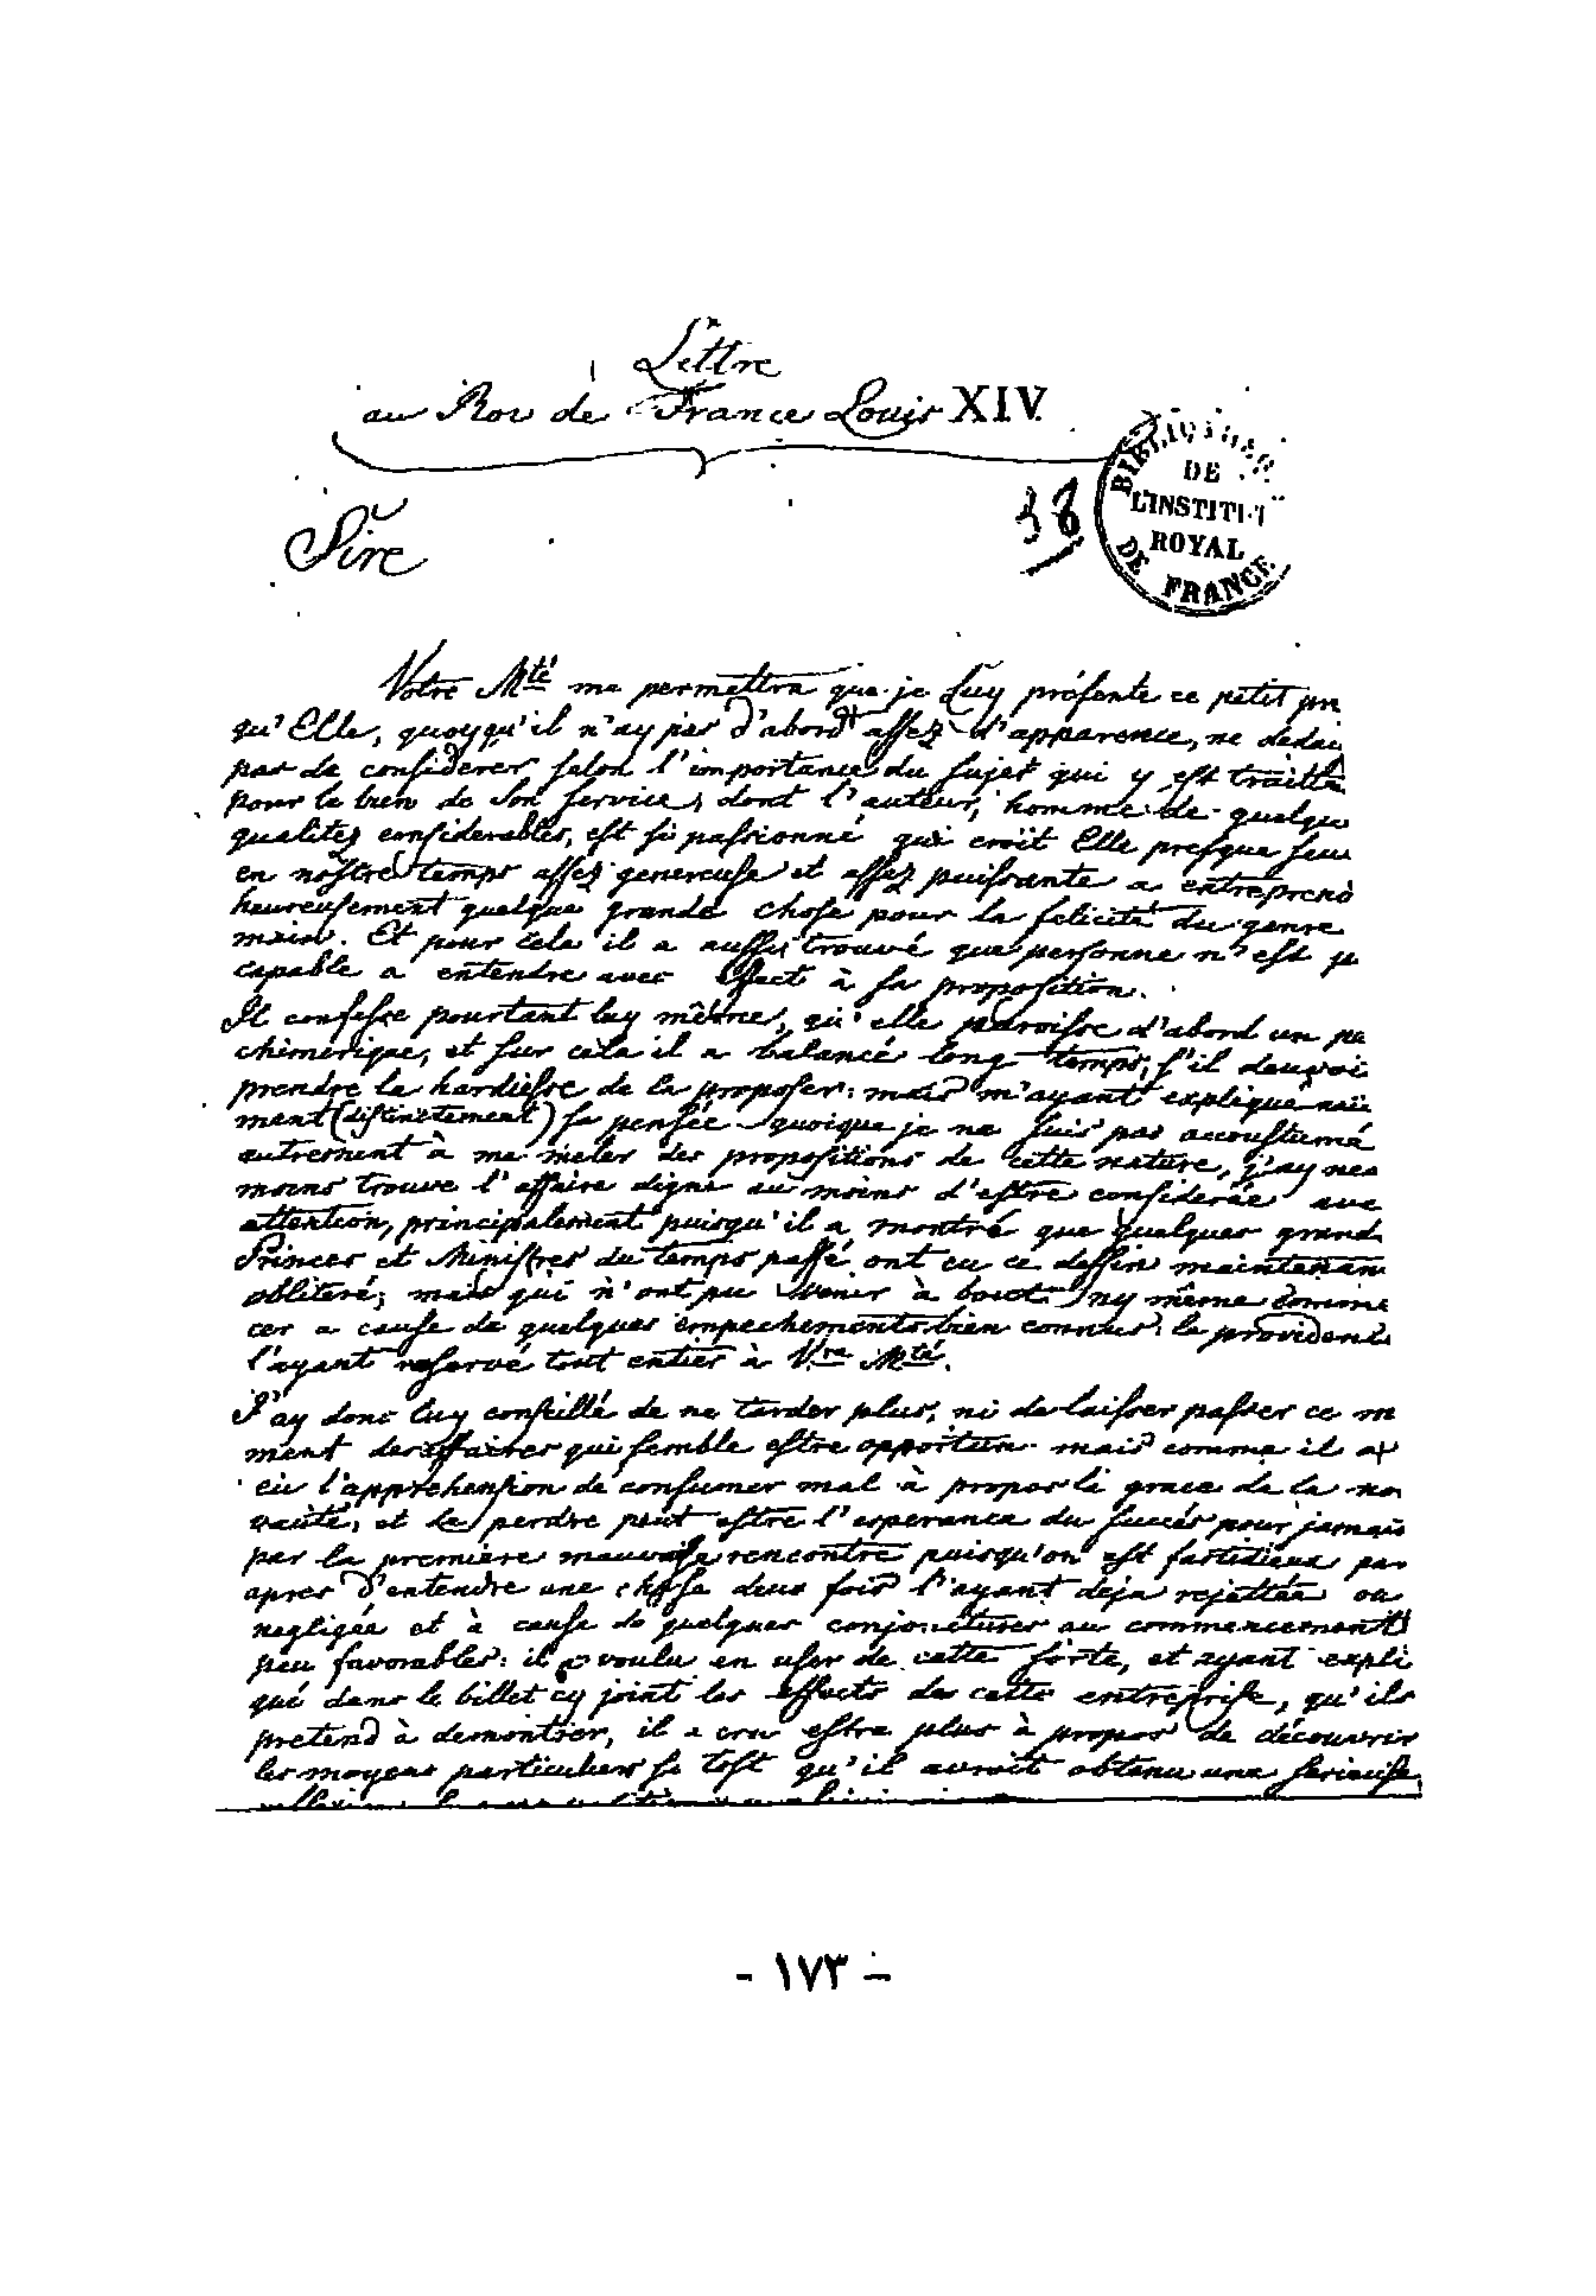 Lettre
au Roy de France Louis XIV.
BIBLIOTHE
DE
L'INSTITUT
ROYAL
DE FRANCE
38
Sire
Votre Mté me permettra que je Luy présente ce petit
qu'Elle, quoyqu'il n'ay pas d'abord assez d'apparence, ne dedai
pas de considerer selon l'importance du sujet qui y est traitta
pour le bien de Son service, dont l'auteur, homme de quelqu
qualitez considerables, est si passionné qui croit Elle presque seu
en nostre temps assez genereuse et assez puissante a entreprend
heureusement quelque grande chose pour la felicité du genre
main. Et pour cela il a aussi trouvé que personne n'est p
capable a entendre avec effect à sa proposition.
Il confesse pourtant luy même, qu'elle paroisse d'abord un pe
chimerique, et sur cela il a balancé long temps, s'il devroi
prendre la hardiesse de la proposer: mais m'ayant expliqué naïe
ment (distinctement) sa pensée quoique je ne suis pas accoustumé
autrement à me meler des propositions de cette nature, j'ay nea
moins trouvé l'affaire digne au moins d'estre considerée ave
attention, principalement puisqu'il a montré que quelques grand
Princes et Ministres du temps passé ont eu ce dessin maintenan
obliteré; mais qui n'ont pu venir à bout ny même comme
cer a cause de quelques empechements bien connus: la providence
l'ayant reservé tout entier à Vre Mté.
J'ay donc luy conseillé de ne tarder plus, ni de laisser passer ce m
ment des affaires qui semble estre opportun. mais comme il a
eü l'apprehension de consumer mal à propos la grace de la no
vauté, et de perdre peut estre l'esperance du succés pour jamais
par la premiere mauvaise rencontre puisqu'on est fastidieux par
apres d'entendre une chose deux fois l'ayant deja rejettée ou
negligée et à cause de quelques conjonctures au commencement
peu favorables: il a voulu en user de cette sorte, et ayant expli
qué dans le billet cy joint les effects de cette entreprise, qu'ils
pretend à demontrer, il a cru estre plus à propos de découvrir
les moyens particuliers si tost qu'il auroit obtenu une serieuse
- ١٧٣ -